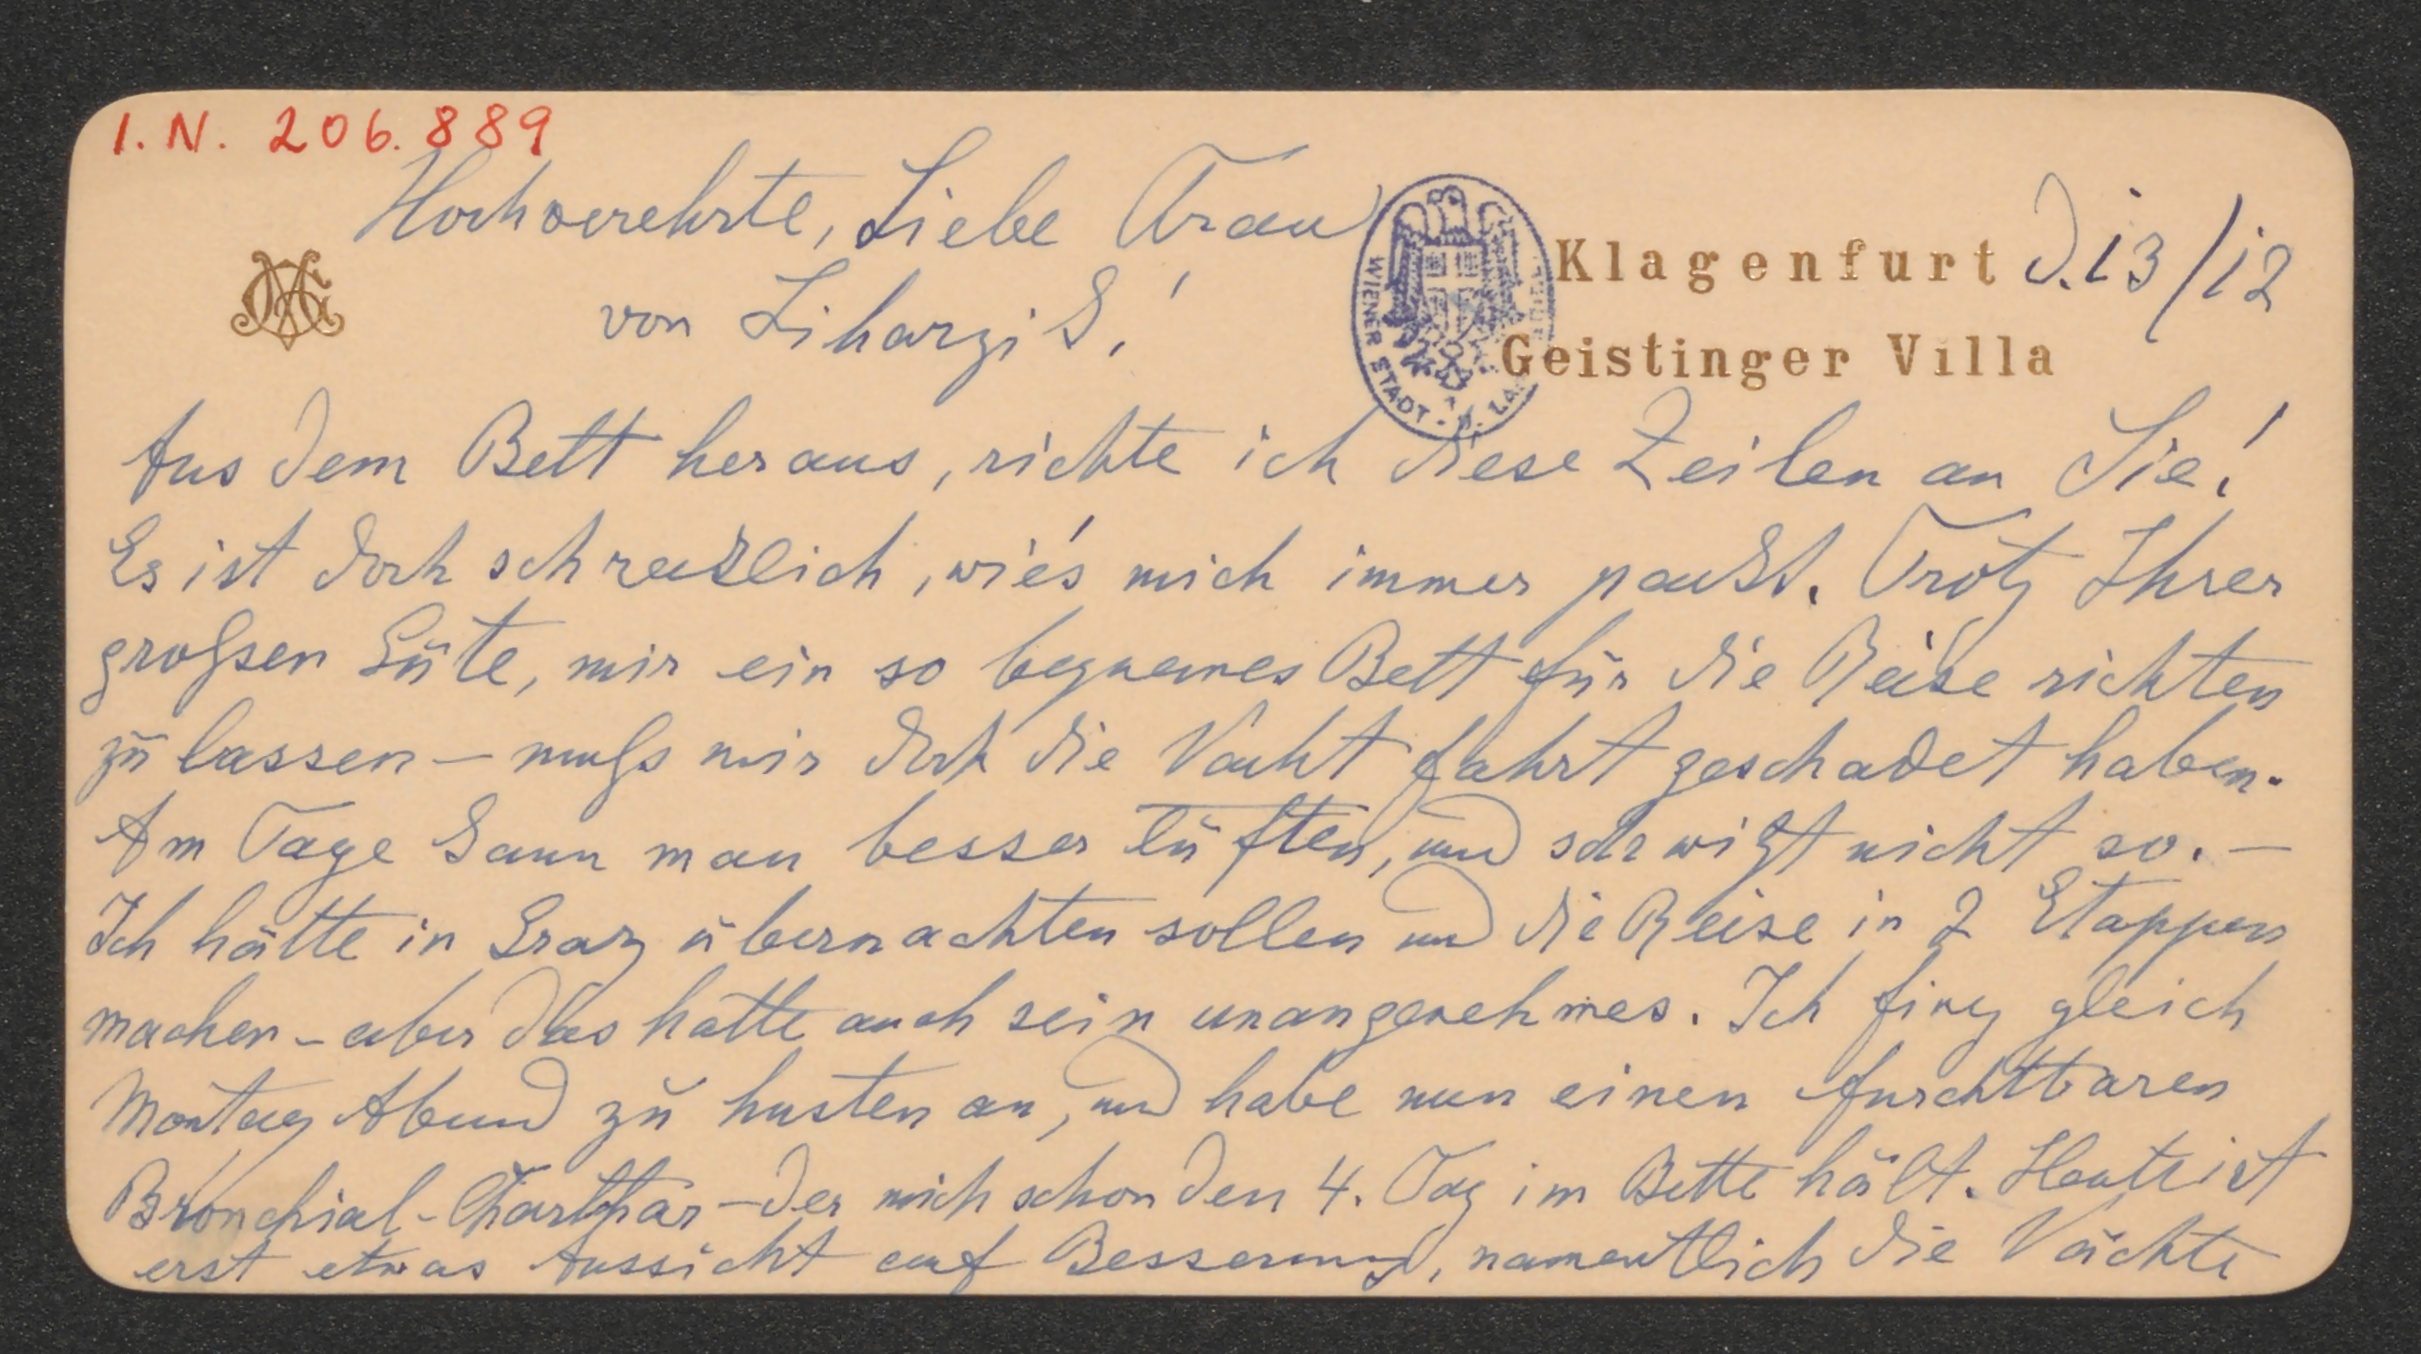 I.N. 206.889
Hochverehrte, Liebe Frau
von Liharzik!
Klagenfurt d. 13/12
Geistinger Villa
WIENER STADT-
Aus dem Bett heraus, richte ich diese Zeilen an Sie!
Es ist doch schrecklich, wie's mich immer packt. Trotz Ihrer
großen Güte, mir ein so bequemes Bett für die Reise richten
zu lassen – muß mir doch die Nacht fahrt geschadet haben.
Am Tage kann man besser lüften, und schwitzt nicht so. –
Ich hätte in Graz übernachten sollen und die Reise in 2 Etappen
machen – aber das hatte auch sein unangenehmes. Ich fing gleich
Montag Abend zu husten an, und habe nun einen furchtbaren
Bronchial- – der mich schon den 4. Tag im Bette hält. Heute ist
erst etwas Aussicht auf Besserung, namentlich die Nächte